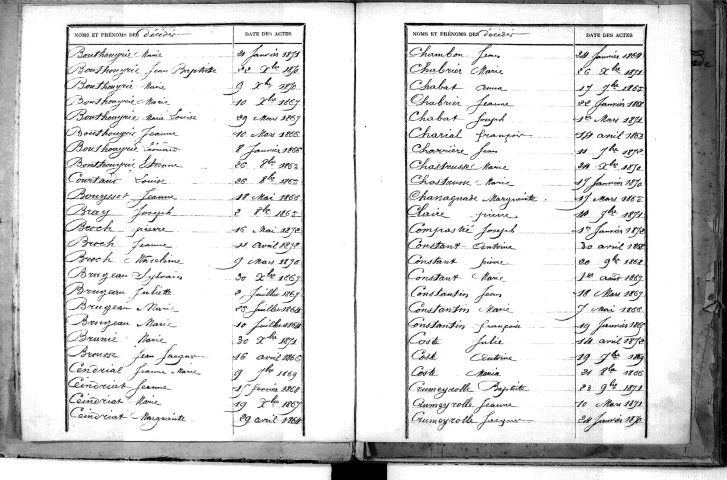 NOMS ET PRÉNOMS DES décédés DATE DES ACTES
Bouthouyrie Marie 21 Janvier 1871
Bouthouyrie Jean Baptiste 22 Xbre 1870
Bouthouyrie Marie 9 Xbre 1870
Bouthouyrie Marie 10 Xbre 1867
Bouthouyrie Marie Louise 29 Mars 1867
Bouthouyrie Jeanne 10 Mars 1866
Bouthouyrie Léonard 8 Janvier 1866
Bouthouyrie Etienne 26 8bre 1865
Courtaud Louise 26 8bre 1865
Bouysset Jeanne 18 Mai 1866
Bray Joseph 2 8bre 1865
Broch pierre 16 Mai 1872
Broch Jeanne 11 avril 1872
Broch Marceline 9 Mars 1870
Brugeau Sylvain 30 Xbre 1867
Brugeau Juliette 2 Juillet 1867
Brugeau Marie 25 Juillet 1864
Brugeau Marie 10 Juillet 1864
Brunie Marie 30 Xbre 1871
Brousse Jean Jacques 16 avril 1866
Cendriat Jeanne Marie 9 7bre 1869
Cendriat Jeanne 15 fevrier 1868
Cendriat Marie 19 Xbre 1867
Cendriat Marguerite 29 avril 1864
NOMS ET PRÉNOMS DES décédés DATE DES ACTES
Chambon Jean 24 Janvier 1864
Chabrier Marie 26 Xbre 1872
Chabat anna 17 7bre 1865
Chabrier Jeanne 22 Janvier 1868
Chabat Joseph 1er Mars 1872
Charial françois 14 avril 1863
Charrière Jean 11 7bre 1872
Chastrusse Marie 24 Xbre 1870
Chastrusse Marie 17 Janvier 1870
Chanagnade Marguerite 17 Mars 1865
Claire pierre 14 7bre 1871
Compastié Joseph 1er Janvier 1872
Constant Antoine 30 avril 1868
Constant pierre 20 9bre 1868
Constant Marie 1er août 1867
Constantin Jean 18 Mars 1867
Constantin Marie 7 Mai 1866
Constantin françois 19 Janvier
Coste Julie 14 avril 1872
Coste Antoine 19 7bre 1869
Coste Marie 21 8bre 1866
Crumeyrolle Baptiste 23 9bre 1871
Crumeyrolle Jeanne 10 Mars 1872
Crumeyrolle Jacques 24 Janvier 1870